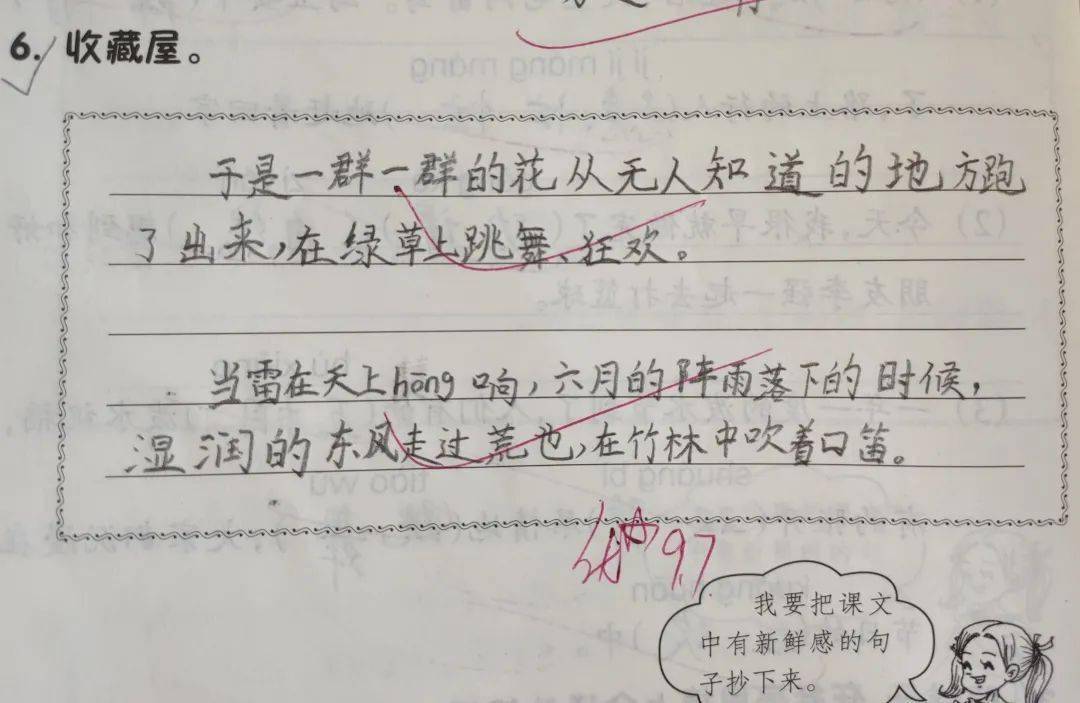 6. 收藏屋。
于是一群一群的花从无人知道的地方跑
了出来,在绿草上跳舞、狂欢。
当雷在天上hōng响,六月的阵雨落下的时候,
湿润的东风走过荒也,在竹林中吹着口笛。
优 9.7
我要把课文
中有新鲜感的句
子抄下来。